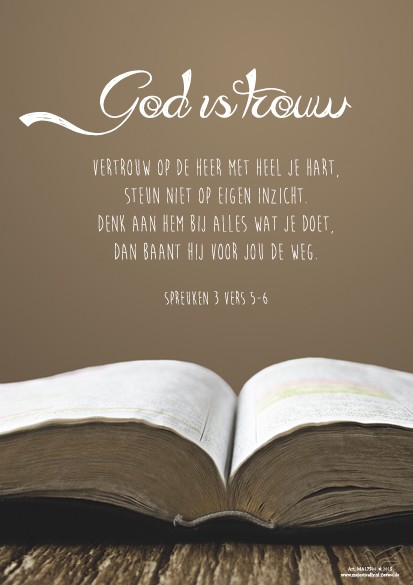 God is trouw
VERTROUW OP DE HEER MET HEEL JE HART,
STEUN NIET OP EIGEN INZICHT.
DENK AAN HEM BIJ ALLES WAT JE DOET,
DAN BAANT HIJ VOOR JOU DE WEG.
SPREUKEN 3 VERS 5-6